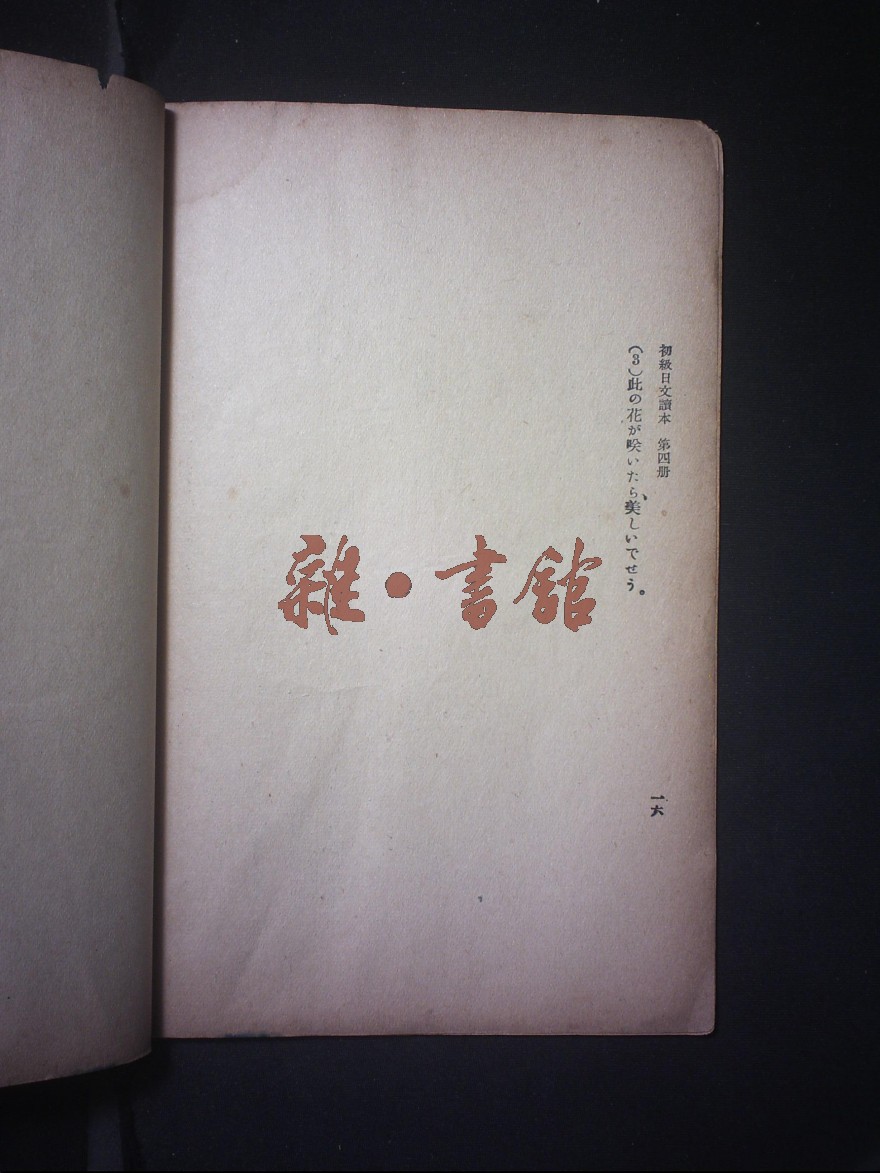 初級日文讀本　第四册
(3)此の花が咲いたら、美しいでせう。
一六
雜・書館